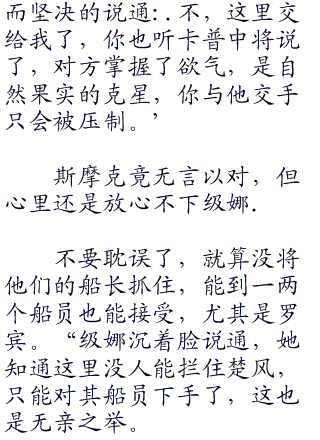 而坚决的说通:.不，这里交
给我了，你也听卡普中将说
了，对方掌握了欲气，是自
然果实的克星，你与他交手
只会被压制。’
斯摩克竟无言以对，但
心里还是放心不下级娜.
不要耽误了，就算没将
他们的船长抓住，能到一两
个船员也能接受，尤其是罗
宾。“级娜沉着脸说通，她
知通这里没人能拦住楚风，
只能对其船员下手了，这也
是无亲之举。